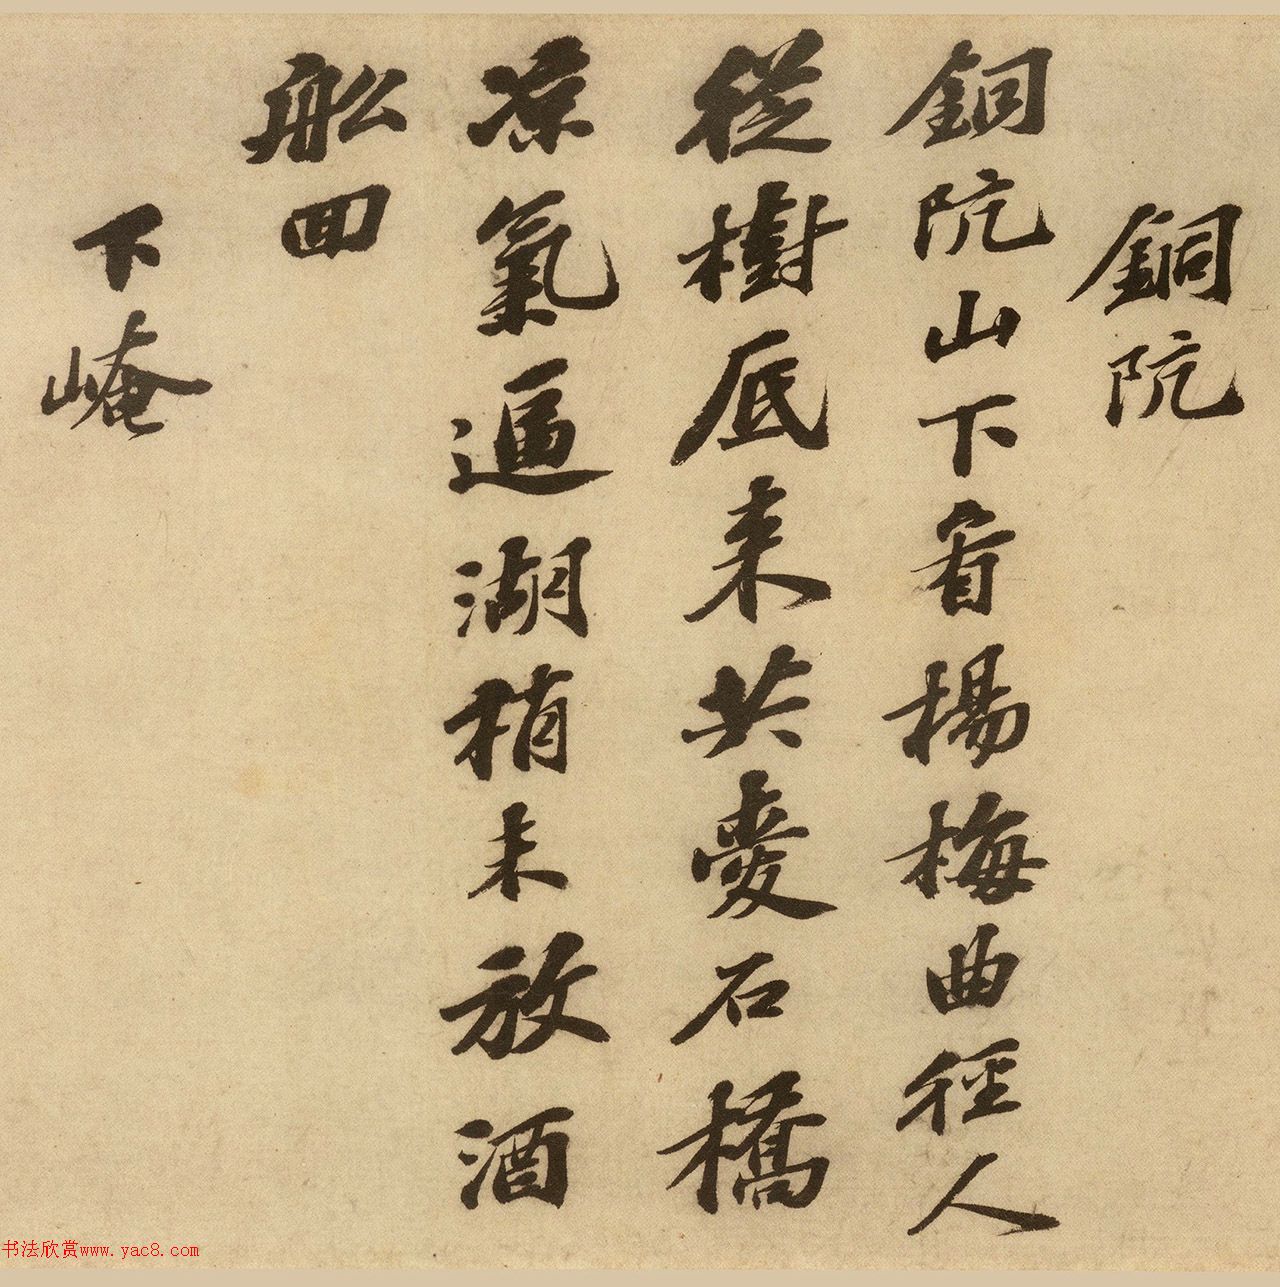 銅阬
銅阬山下看楊梅曲徑人
從樹底来共愛石橋
凉氣逼湖稍未放酒
船回
下崦
书法欣赏www.yac8.com